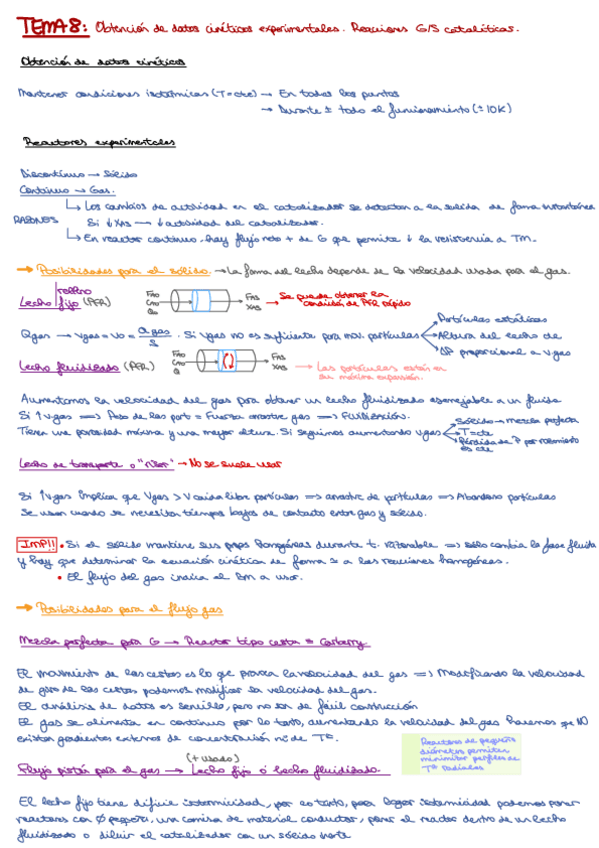 TEMA 8: Obtención de datos cinéticos experimentales. Reacciones G/S catalíticas.
Obtención de datos cinéticos
Mantener condiciones isotérmicas (T=cte) → En todos los puntos
→ Durante ± todo el funcionamiento (±10K)
Reactores experimentales
Discontinuo → Sólido
Continuo → Gas.
RAZONES
↳ Los cambios de actividad en el catalizador se detectan a la salida de forma instantánea
Si ↓XAS → ↓actividad del catalizador.
↳ En reactor continuo, hay flujo neto + de G que permite ↓ la resistencia a TM.
→ Posibilidades para el sólido. → La forma del lecho depende de la velocidad usada para el gas.
relleno
Lecho fijo (PFR)
FAO
CAO
Qo
FAS
XAS
→ Se puede obtener la
condición de PFR rápido
Qgas → vgas = vo = Qgas / S . Si vgas no es suficiente para mov. partículas
Partículas estáticas
Altura del lecho cte
ΔP proporcional a vgas
Lecho fluidizado (PFR)
FAO
CAO
Q
FAS
XAS
→ Las partículas están en
su máxima expansión.
Aumentamos la velocidad del gas para obtener un lecho fluidizado asemejable a un fluido
Si ↑vgas ⟹ Peso de las part = Fuerza arrastre gas ⟹ Fluidización.
Tienen una porosidad máxima y una mayor altura. Si seguimos aumentando vgas
Sólido → mezcla perfecta
T=cte
Pérdida de P por rozamiento
es cte
Lecho de transporte o "riser" → No se suele usar
Si ↑vgas implica que vgas > v caída libre partículas ⟹ arrastre de partículas ⟹ Abandono partículas
Se usan cuando se necesitan tiempos bajos de contacto entre gas y sólido.
IMP!! • Si el sólido mantiene sus props homogéneas durante t. razonable ⟹ sólo cambia la fase fluida
y hay que determinar la ecuación cinética de forma ≃ a las reacciones homogéneas.
• El flujo del gas indica el BM a usar.
→ Posibilidades para el flujo gas
Mezcla perfecta para G → Reactor tipo cesta = Carberry.
El movimiento de las cestas es lo que provoca la velocidad del gas ⟹ Modificando la velocidad
de giro de las cestas podemos modificar la velocidad del gas.
El análisis de datos es sencillo, pero no son de fácil construcción
El gas se alimenta en continuo por lo tanto, aumentando la velocidad del gas haremos que NO
existan gradientes externos de concentración ni de Tª.
Reactores de pequeño
diámetro permiten
minimizar perfiles de
Tª radiales
(+ usado)
Flujo pistón para el gas → Lecho fijo ó lecho fluidizado.
El lecho fijo tiene difícil isotermicidad, por lo tanto, para lograr isotermicidad podemos poner
reactores con Ø pequeño, una camisa de material conductor, poner el reactor dentro de un lecho
fluidizado o diluir el catalizador con un sólido inerte